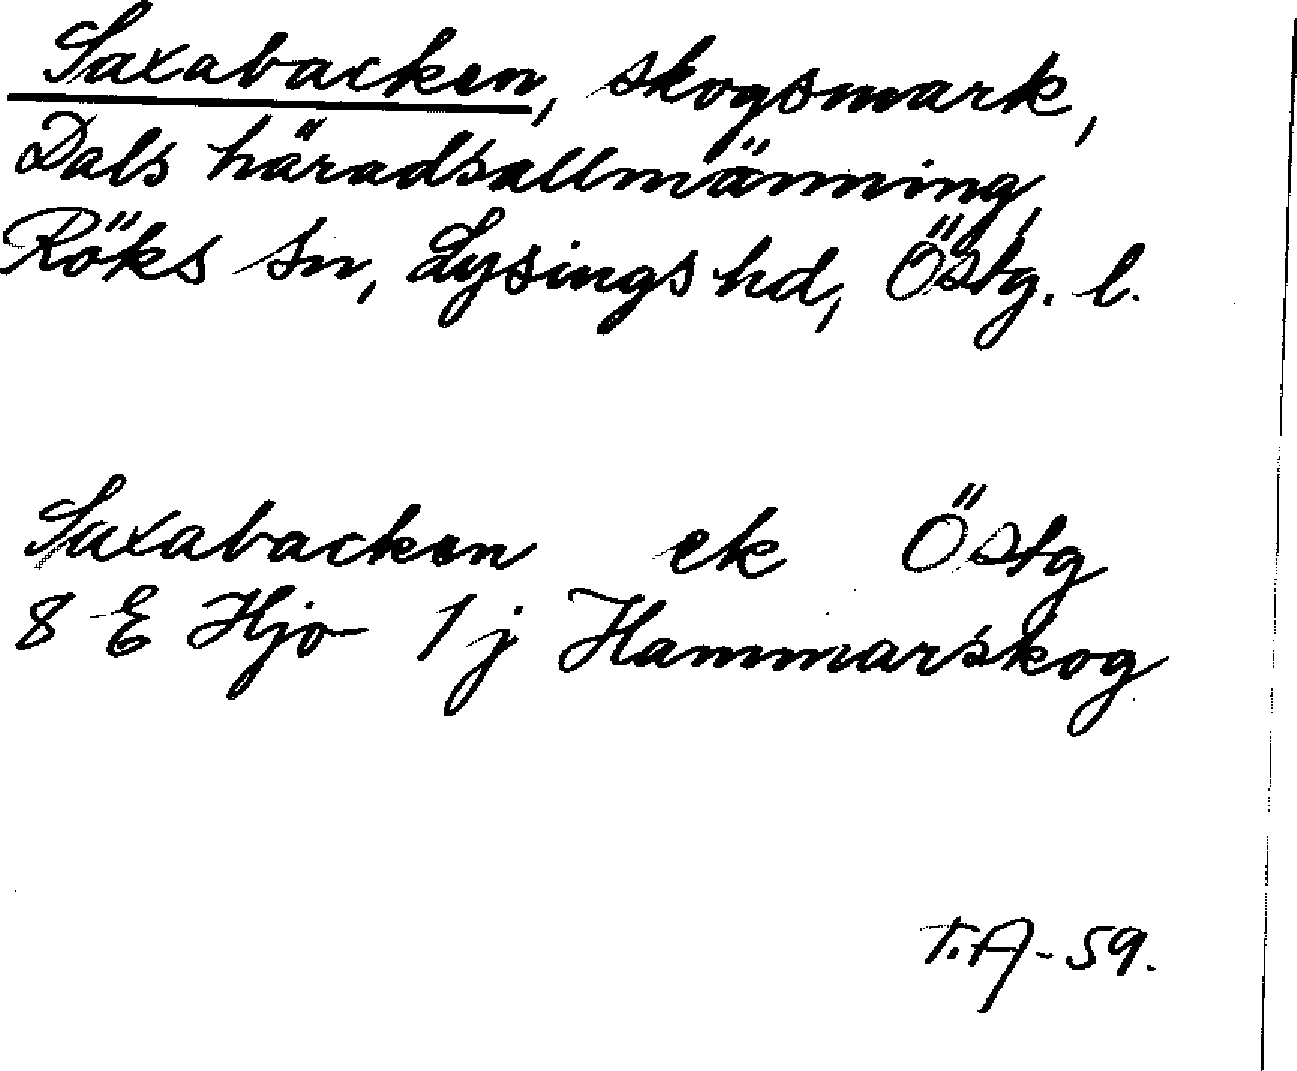 Saxabacken, skogsmark,
Dals häradsallmänning,
Röks sn, Lysings hd, Östg. l.
Saxabacken ek Östg
8 E Hjo 1 j Hammarskog
T.A - 59.